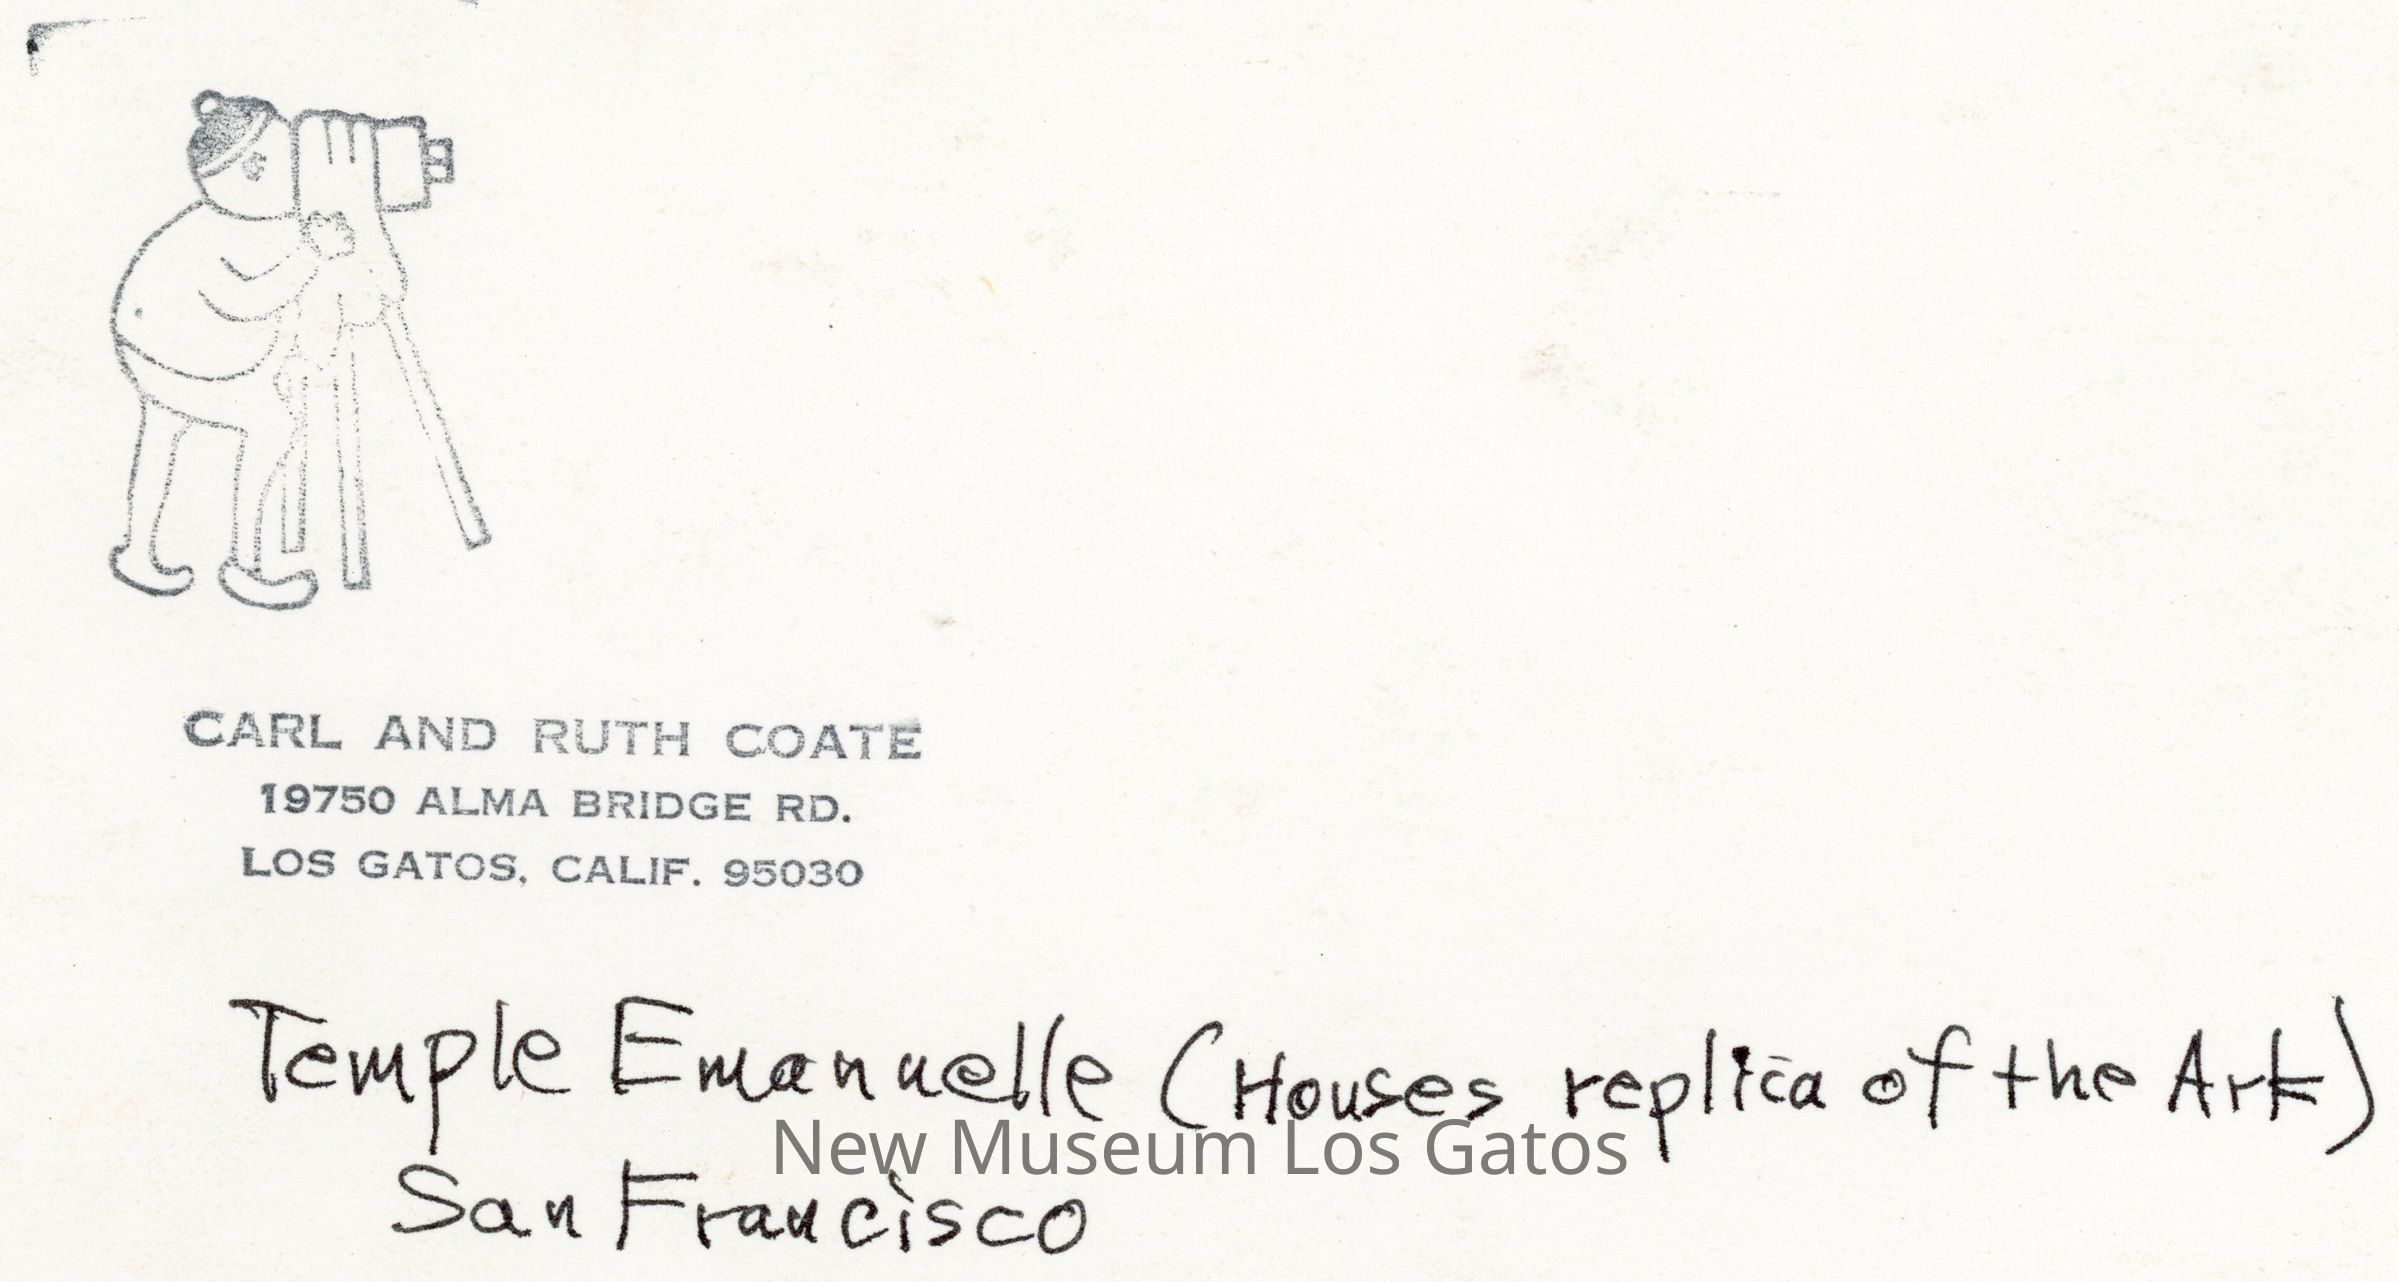 CARL AND RUTH COATE
19750 ALMA BRIDGE RD.
LOS GATOS, CALIF. 95030
Temple Emanuelle (Houses replica of the Ark)
New Museum Los Gatos
San Francisco